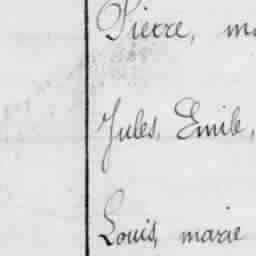 Pierre, ma
Jules, Emile,
Louis, marie